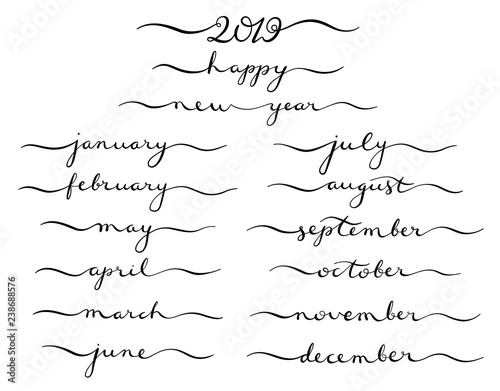 2019
happy
new year
january
february
may
april
march
june
july
august
september
october
november
december
Adobe Stock | #238688576